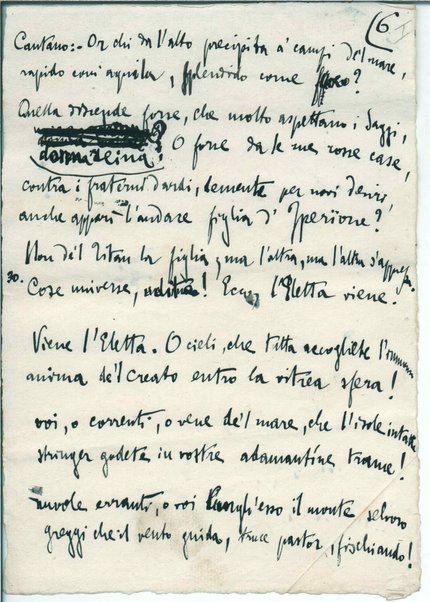 (6
Cantano:- Or chi da l'alto precipita a' campi del mare,
rapido com' aquila, splendido come foco?
Quella discende forse, che molto aspettano i Saggi,
donna divina? O forse da le sue rosse case,
contra i fraterni dardi, demente per novi desiri,
anche appari l'andare figlia d'Iperione?
Non del Titan la figlia; ma l'altra, ma l'altra s'appressa.
30. Cose universe, udite! Ecco, l'Eletta viene!
Viene l'Eletta. O cieli, che tutta accogliete l'immensa
anima del Creato entro la vitrea sfera!
voi, o correnti, o vene del mare, che l'isole intatte
stringer godete in vostre adamantine trame!
nuvole erranti, o voi lungh'esso il monte selvoso
greggi che il vento guida, truce pastor, fischiando!